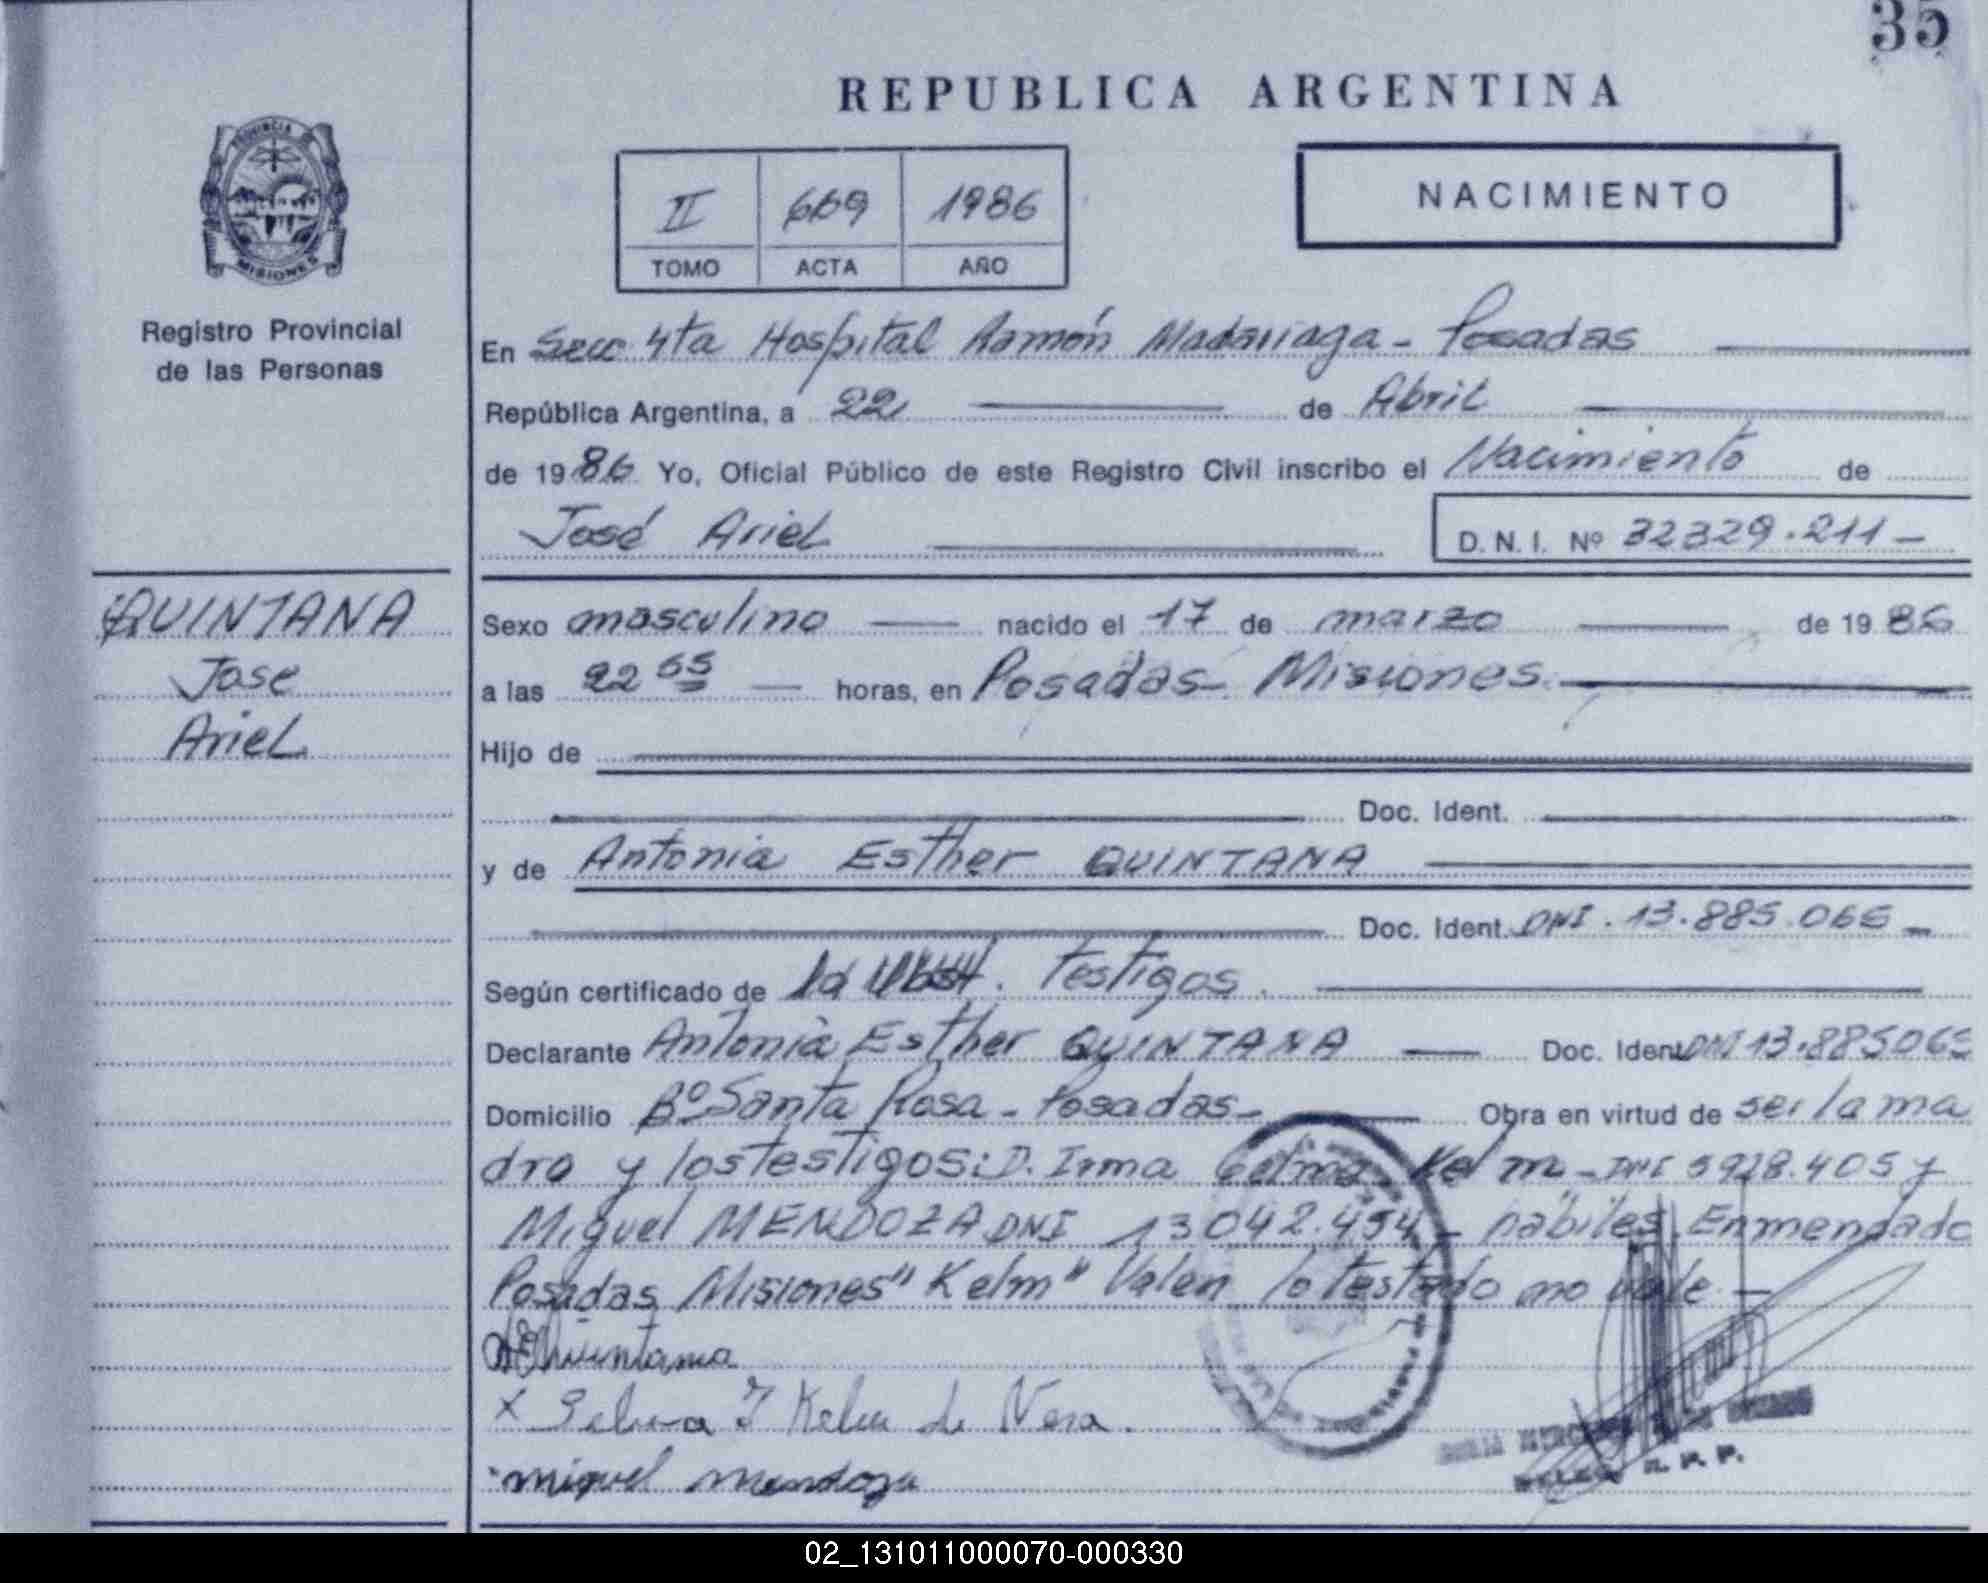 35
REPUBLICA ARGENTINA
NACIMIENTO
II 669 1986
TOMO ACTA AÑO
PROVINCIA
MISIONES
Registro Provincial
de las Personas
En Secc 4ta Hospital Ramón Madariaga - Posadas
República Argentina, a 22 de Abril
de 1986 Yo, Oficial Público de este Registro Civil inscribo el Nacimiento de
José Ariel D.N.I. Nº 32329.211-
QUINTANA
Jose
Ariel
Sexo masculino nacido el 17 de marzo de 1986
a las 22 55 horas, en Posadas Misiones
Hijo de
Doc. Ident.
y de Antonia Esther QUINTANA
Doc. Ident. DNI. 13.885.065
Según certificado de testigos.
Declarante Antonia Esther QUINTANA Doc. Ident DNI 13.885065
Domicilio Bº Santa Rosa - Posadas - Obra en virtud de ser la ma
dre y los testigos: D. Irma Kelm - DNI 5928.405 y
Miguel MENDOZA DNI 13042.454 - hábiles. Enmendado
Posadas Misiones" Kelm" Valen lo testado no vale -
Quintana
X Selva I Kelm de Vera.
miguel mendoza
02_131011000070-000330